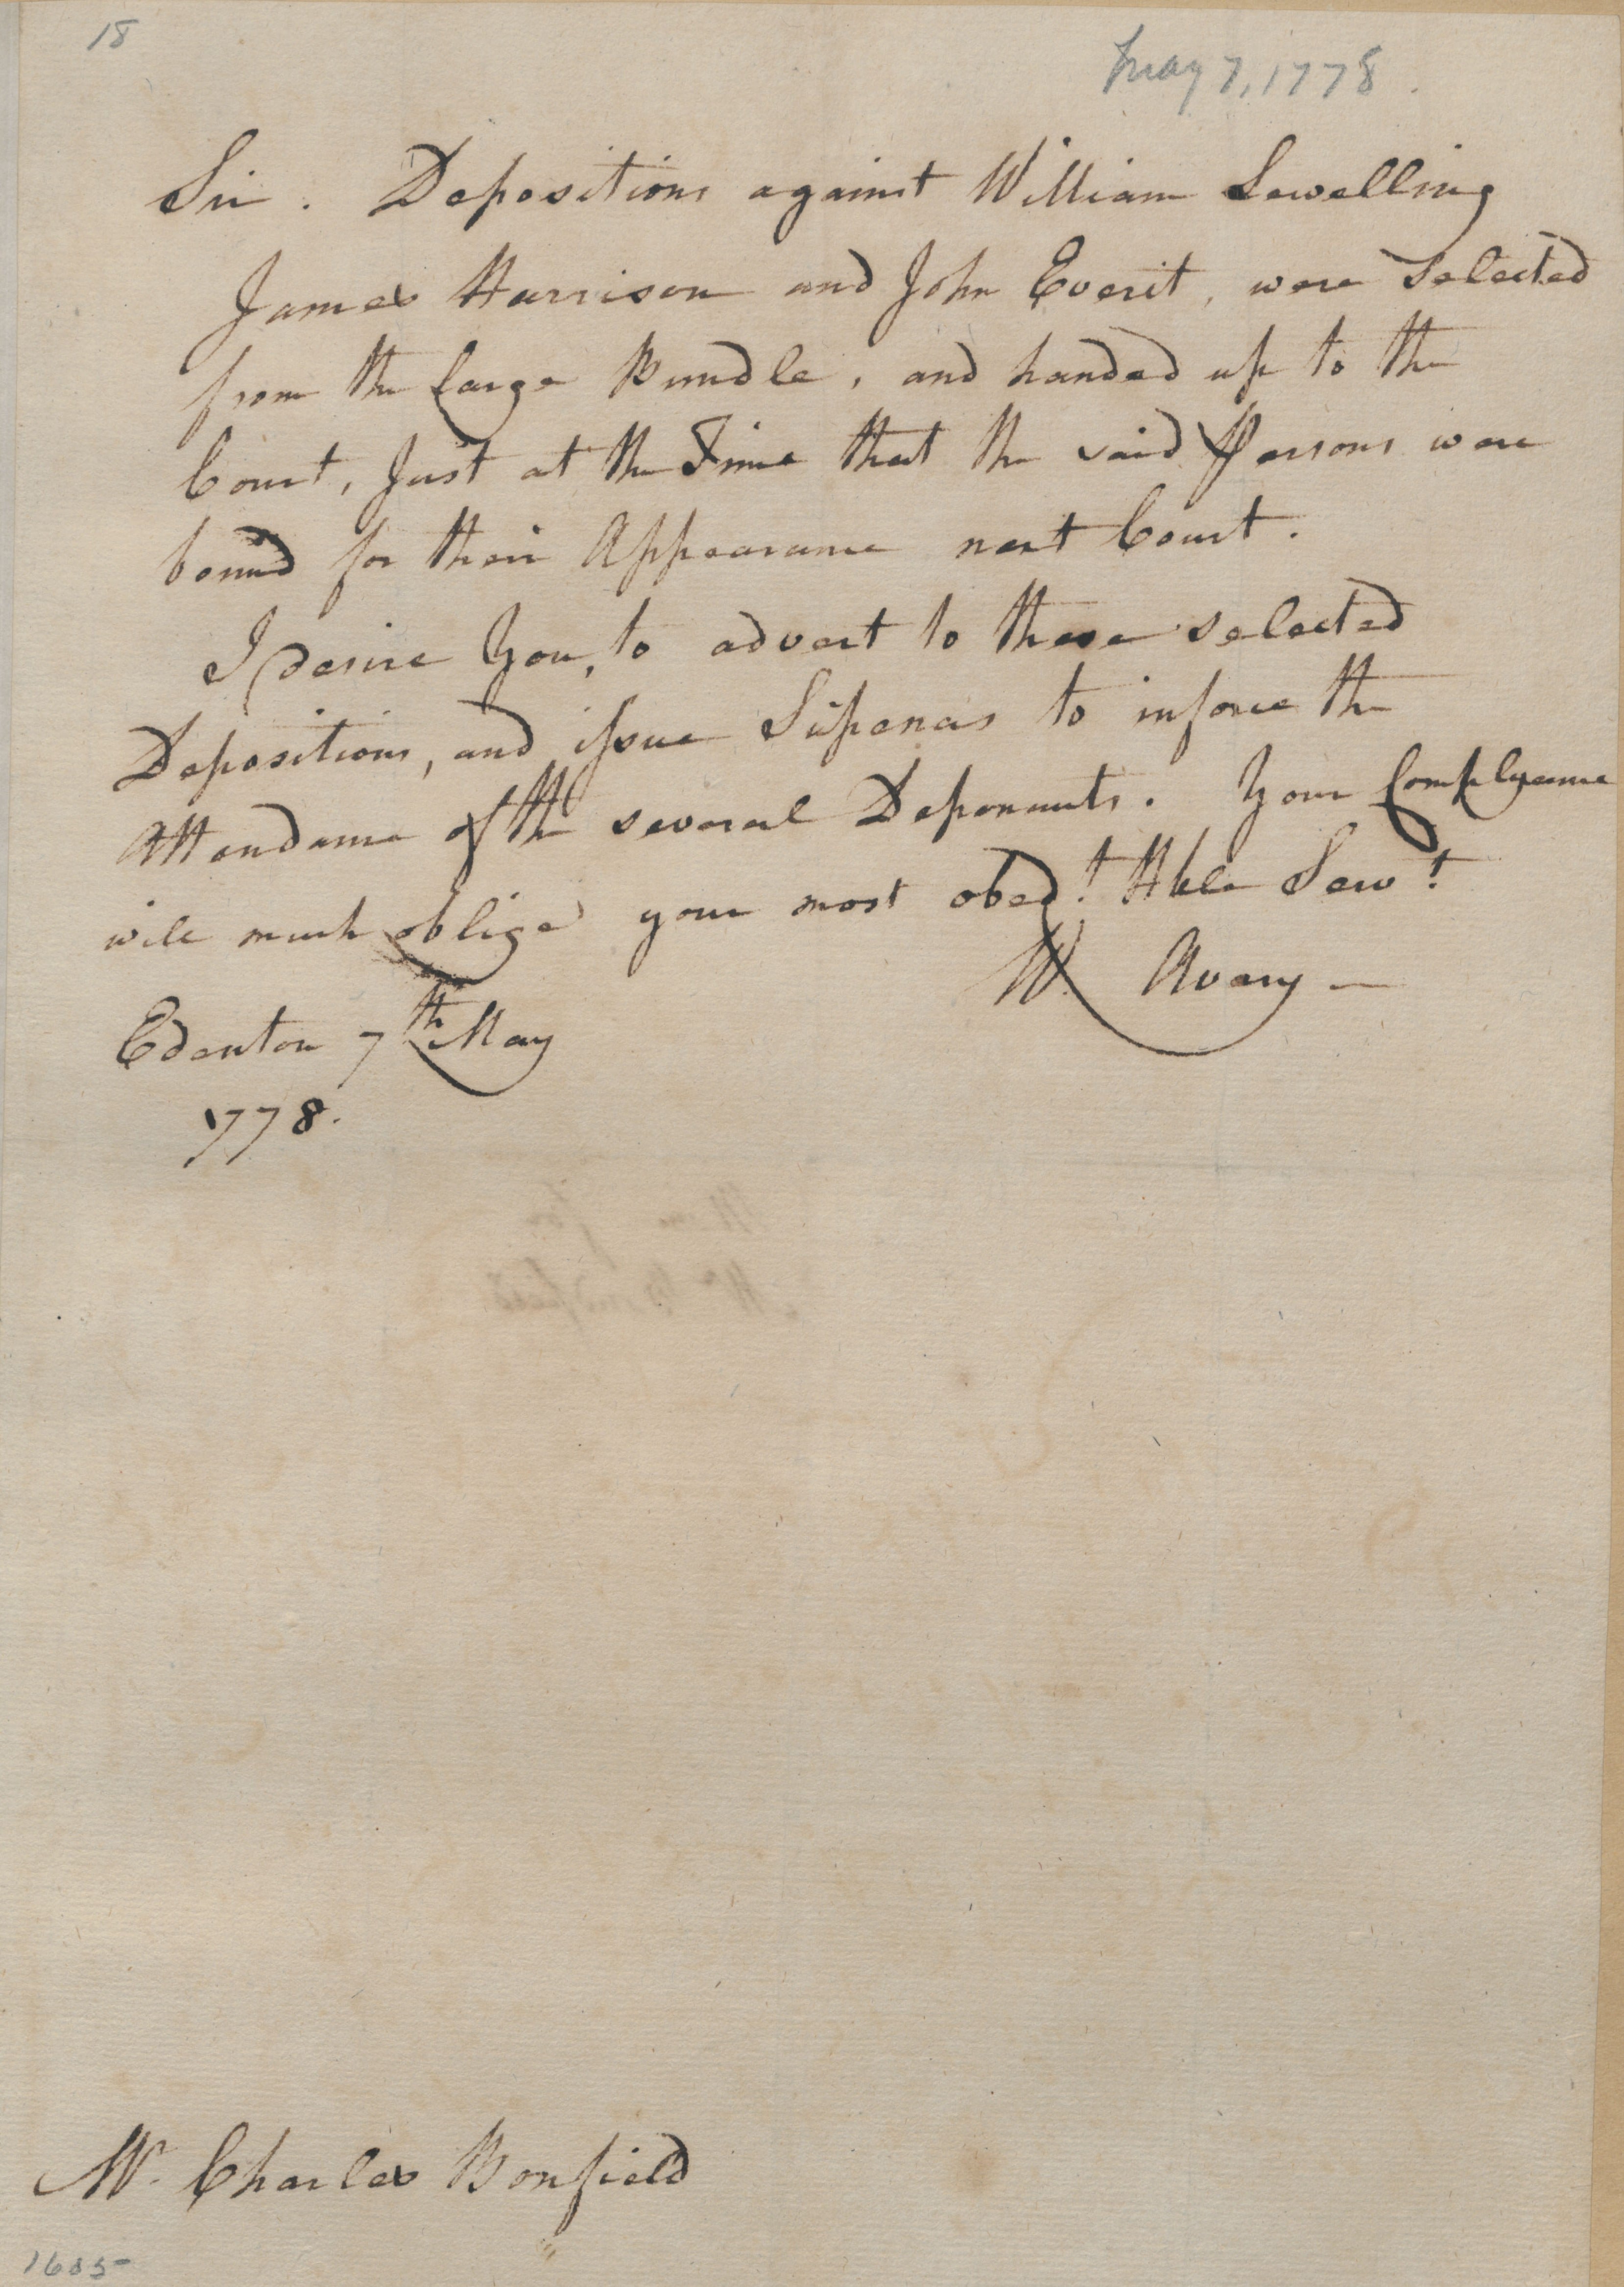 18
May 7, 1778.
Sir. Depositions against William Lewelling
James Harrison and John Everit, were selected
from the large Bundle, and handed up to the
Court, Just at the Time that the said Persons were
bound for their Appearance next Court.
I desire You, to advert to these selected
Depositions, and issue Supenas to inforce the
Attendance of the several Deponants. Your Complyance
will much oblige your most obedt. Hble Servt.
W. Avery —
Edenton 7th May
1778.
Mr. Charles Bonfield
1605